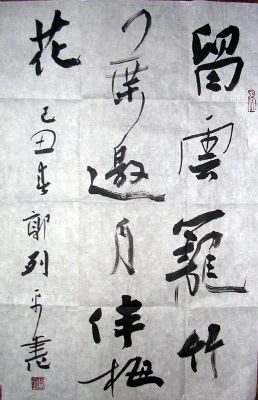 留雲籠竹
葉邀月伴梅
花
己丑春郭列平書